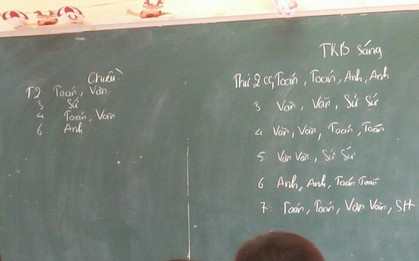 Chiều
T2 Toán, Văn
3 Sử
4 Toán, Văn
6 Anh
TKB Sáng
Thứ 2 CC, Toán, Toán, Anh, Anh
3 Văn, Văn, Sử Sử
4 Văn, Văn, Toán, Toán
5 Văn Văn, Sử Sử
6 Anh, Anh, Toán Toán
7: Toán, Toán, Văn Văn, SH